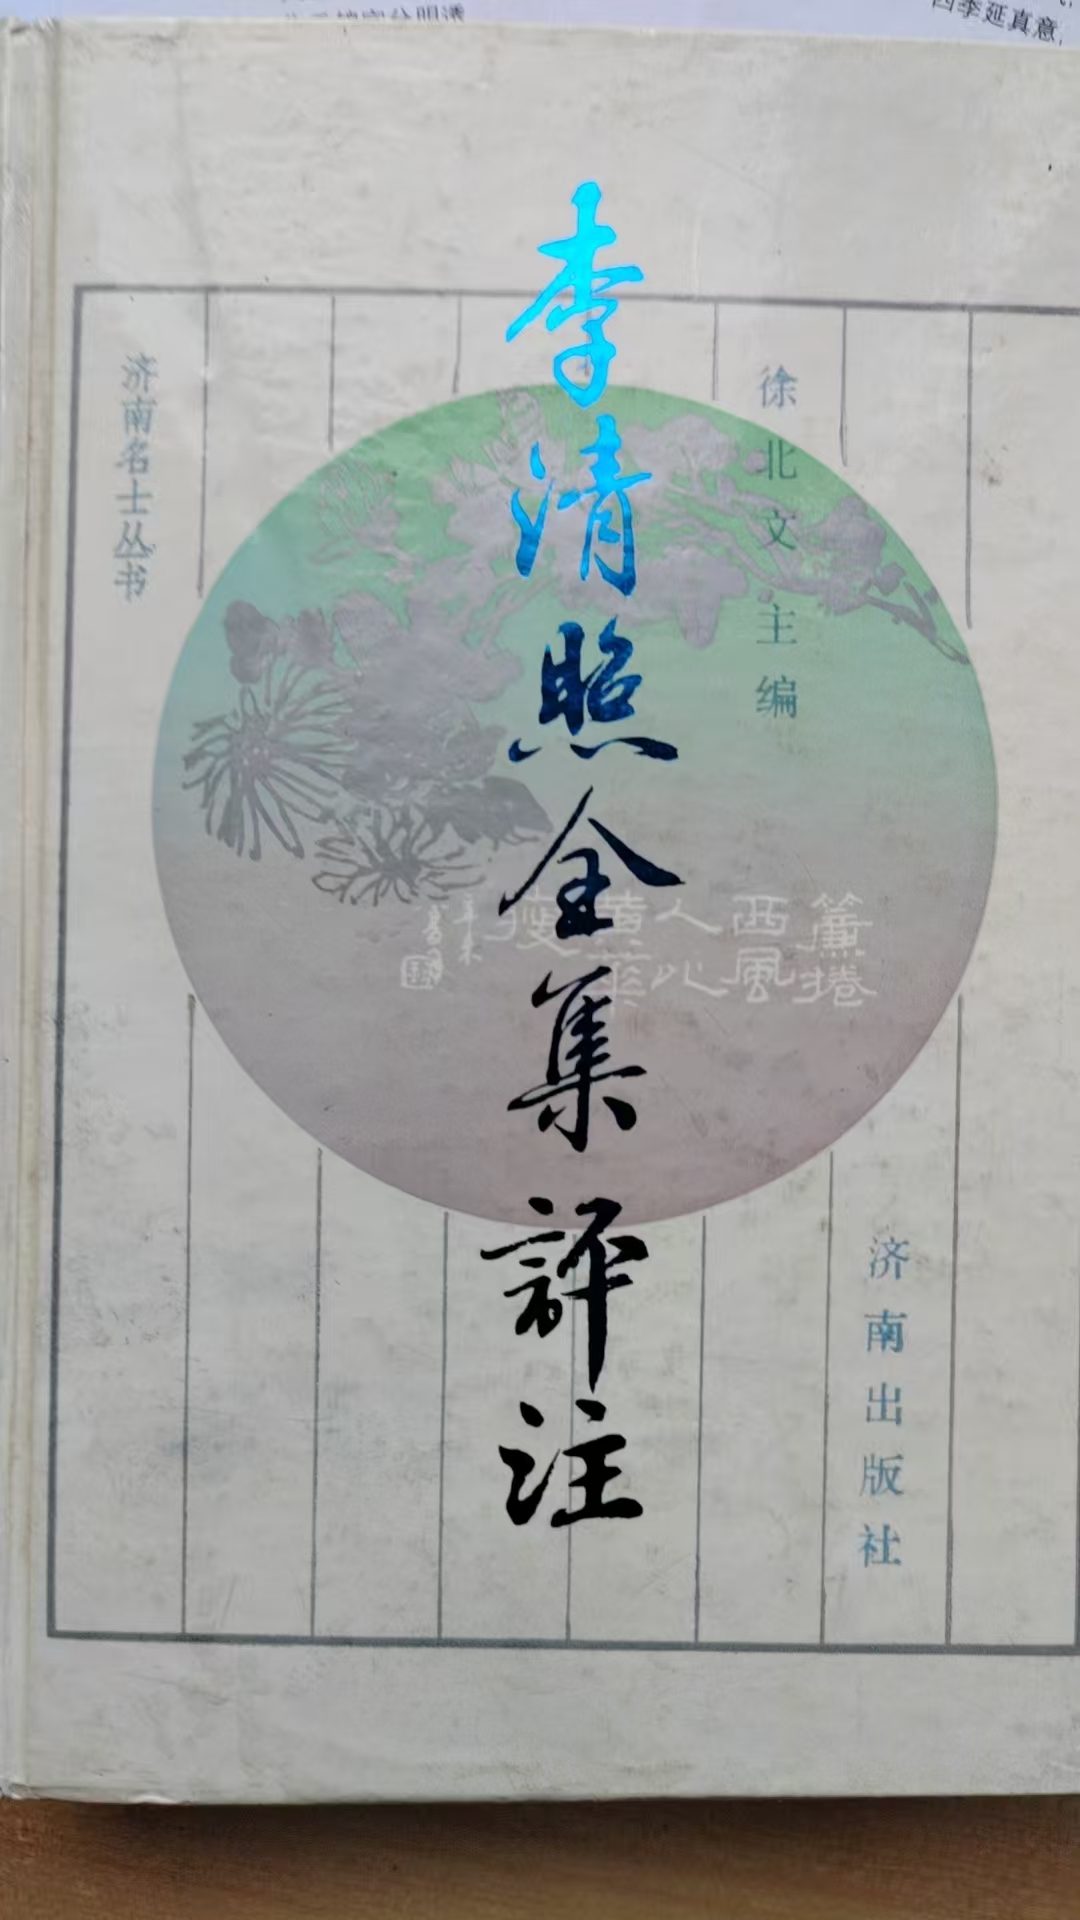 四季延真意,
李清照全集評注
徐北文主编
济南名士丛书
簾捲
西風
人比
黄花
瘦
辛未
济南出版社